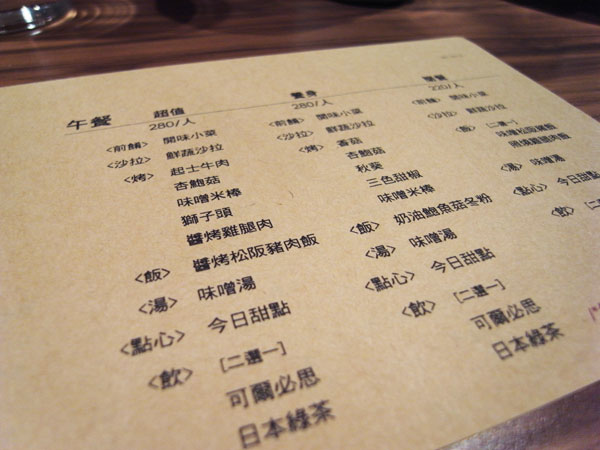 午餐
超值
280/人
<前餚> 開味小菜
<沙拉> 鮮蔬沙拉
<烤> 起士牛肉
杏鮑菇
味噌米棒
獅子頭
醬烤雞腿肉
<飯> 醬烤松阪豬肉飯
<湯> 味噌湯
<點心> 今日甜點
<飲> [二選一]
可爾必思
日本綠茶
280/人
<前餚> 開味小菜
<沙拉> 鮮蔬沙拉
<烤> 香菇
杏鮑菇
秋葵
三色甜椒
味噌米棒
<飯> 奶油鮑魚菇冬粉
<湯> 味噌湯
<點心> 今日甜點
<飲> [二選一]
可爾必思
日本綠茶
220/人
<前餚> 開味小菜
<沙拉> 鮮蔬沙拉
<飯> [二選一]
<湯> 味噌湯
<點心> 今日甜
<飲> [二